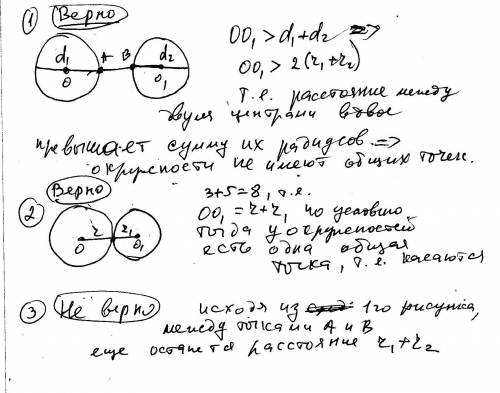 ① Верно
d₁ A B d₂
O O₁
OO₁ > d₁+d₂ =>
OO₁ > 2(r₁+r₂)
т.е. расстояние между
двумя центрами вдвое
превышает сумму их радиусов =>
окружности не имеют общих точек.
② Верно
r r₁
O O₁
3+5=8, т.е.
OO₁ = r+r₁ по условию
тогда у окружностей
есть одна общая
точка, т.е. касаются
③ Не верно исходя из 1го рисунка,
между точками A и B
еще останется расстояние r₁+r₂